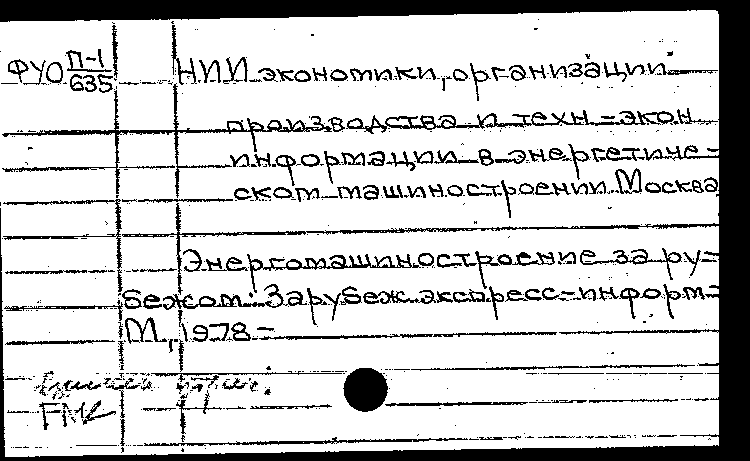 ФУО П-1/635 НИИ экономики, организации
производства и техн-экон
информации в энергетиче-
ском машиностроении. Москва
Энергомашиностроение за ру-
бежом: Зарубеж. экспресс-информ-
М., 1978-
ГМК